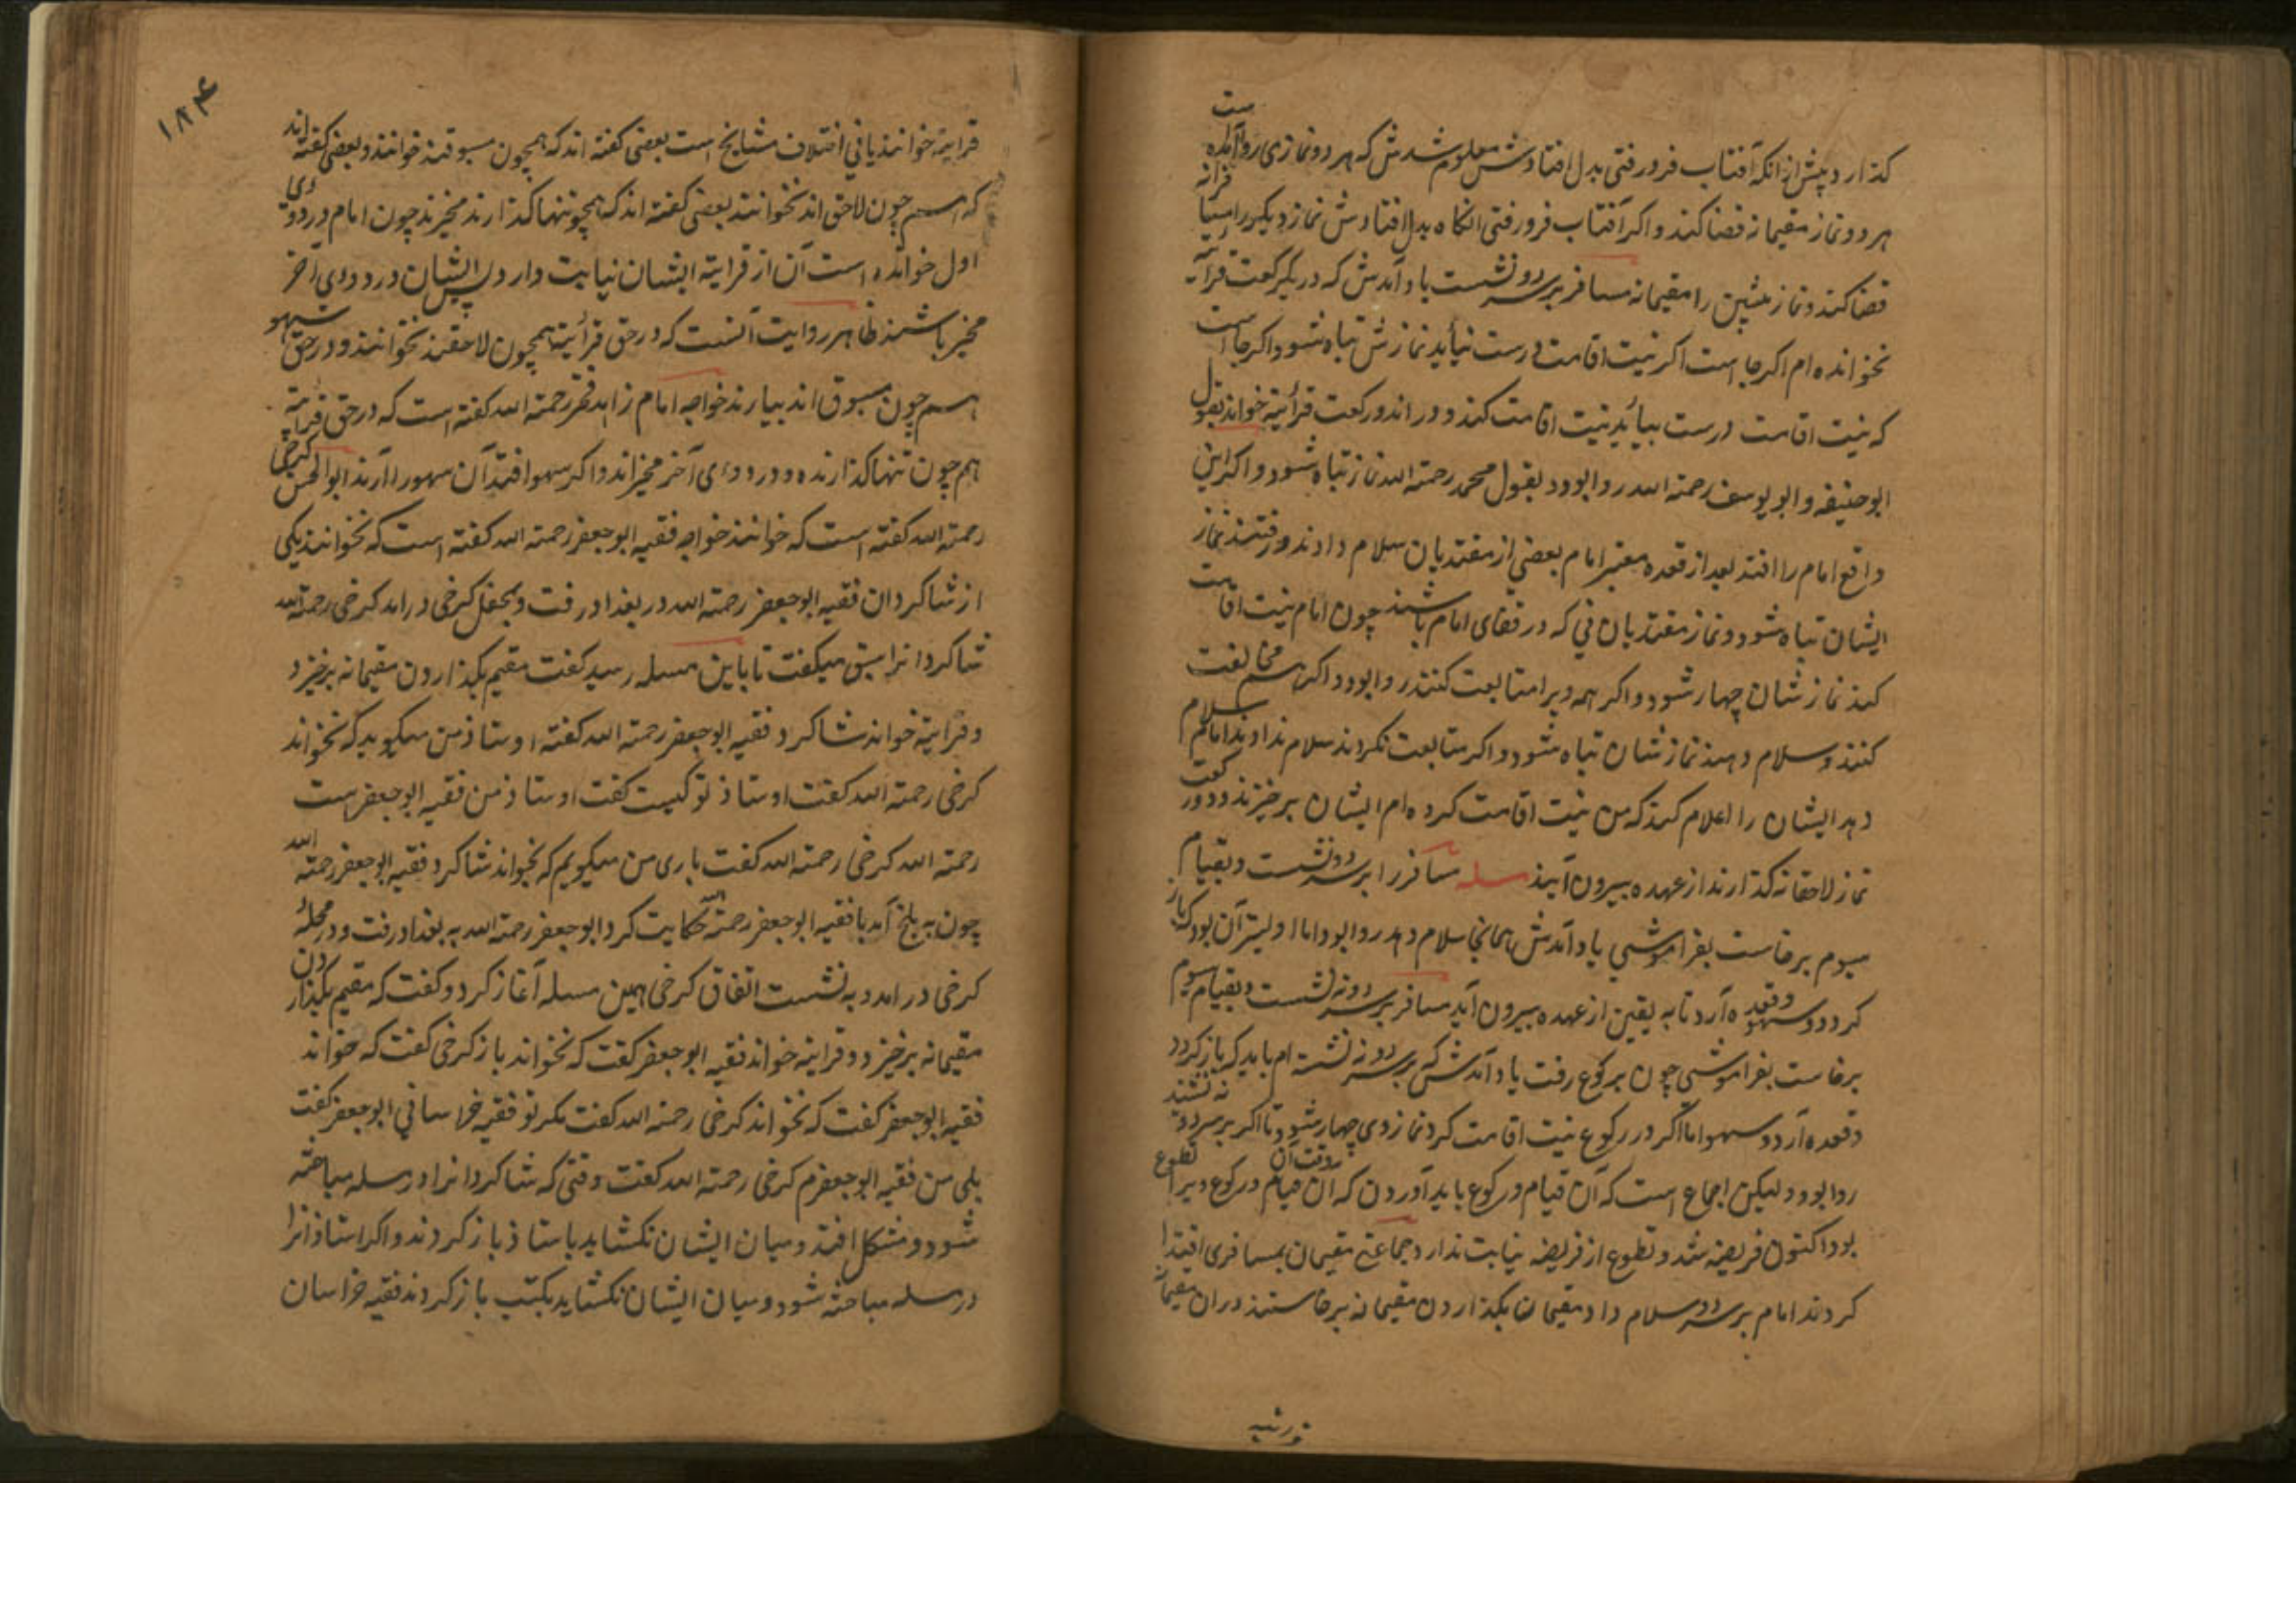 كذارد پیش از انكه آفتاب فرو رفتی بدل افتادش معلوم شدش كه هر دو نمازی روا آمده است
هر دو نماز مقیمانه قضا كند و اكر آفتاب فرو رفتی انكاه بدل افتادش نماز دیكر را مسافرانه
قضا كند و نماز پیشین را مقیمانه مسافر بر سر دو نشست یاد آمدش كه در یك ركعت قرآئة
نخوانده ام اكر جا است اكر نیت اقامت درست نیاید نمازش تباه شود و اكر جا است
كه نیت اقامت درست بیاید نیت اقامت كند و در اندو ركعت قرائة خواند بقول
ابو حنیفه و ابو یوسف رحمة الله روا بود بقول محمد رحمة الله نماز تباه شود و اكر این
واقع امام را افتد بعد از قعده معتبر امام بعضی از مقتدیان سلام دادند و رفتند نماز
ایشان تباه شود و نماز مقتدیان نی كه در قفای امام باشند چون امام نیت اقامت
كند نماز شان چهار شود و اكر همه ویرا متابعت كنند روا بود و اكر هم مخالفت
كنند و سلام دهند نماز شان تباه شود و اكر متابعت نكردند سلام ندادند امام سلام
دهد ایشان را اعلام كند كه من نیت اقامت كرده ام ایشان بر خیزند و دو ركعت
نماز لاحقانه كذارند از عهده بیرون آیند مسله مسافر را بر سر دو نشست و بقیام
سیوم برخاست بفراموشی یاد آمدش همانجا سلام دهد روا بود اما اولیتر آن بود كه باز
كردد و قعده آرد و سهو تا به یقین از عهده بیرون آید مسافر بر سر دو نه نشست و بقیام سیوم
برخاست بفراموشی چون بركوع رفت یاد آمدش كه بر سر دو نه نشسته ام باید كه باز كردد
و قعده آرد و سهو اما اكر در ركوع نیت اقامت كرد نماز وی چهار شود تا اكر بر سر دو نه نشیند
روا بود و لیكن اجماع است كه آن قیام و ركوع باید آوردن كه آن قیام و ركوع ویرا بوقت آن تطوع
بود اكنون فریضه شد و تطوع از فریضه نیابت ندارد جماعتی مقیمان بمسافری اقتدا
كردند امام بر سر دو سلام داد مقیمان بكذاردن مقیمانه برخاستند در ان مقیمانه
۱۸۴
قرایة خوانند یا نی اختلاف مشایخ است بعضی كفته اند كه همچون مسبوقند خوانند و بعضی كفته اند
كه هم چون لاحق اند نخوانند بعضی كفته اند كه همچو تنها كذارند مخیرند چون امام در دو كی
اول خوانده است آن از قرایة ایشان نیابت دارد پس ایشان در دو كی آخر
مخیر باشند ظاهر روایت آنست كه در حق قرآئة همچون لاحقند نخوانند و در حق سهو
هم چون مسبوق اند بیارند خواجه امام زاهد فخر رحمة الله كفته است كه در حق قرایة
هم چون تنها كذارنده و در دو كی آخر مخیر اند و اكر سهو افتد آن سهو را آرند ابو الحسن كرخی
رحمة الله كفته است كه خوانند خواجه فقیه ابو جعفر رحمة الله كفته است كه نخوانند یكی
از شاكردان فقیه ابو جعفر رحمة الله در بغداد رفت و بمحفل كرخی در امد كرخی رحمة الله
شاكردانرا سبق میكفت تا باین مسله رسید كفت مقیم بكذاردن مقیمانه بر خیزد
و قرایة خواند شاكرد فقیه ابو جعفر رحمة الله كفته اوستاذ من میكوید كه نخواند
كرخی رحمة الله كفت اوستاذ تو كیست كفت اوستاذ من فقیه ابو جعفر است
رحمة الله كرخی رحمة الله كفت باری من میكویم كه بخواند شاكرد فقیه ابو جعفر رحمة الله
چون به بلخ آمد با فقیه ابو جعفر رحمة الله حكایت كرد ابو جعفر رحمة الله به بغداد رفت و در محله
كرخی در امد و به نشست اتفاق كرخی همین مسله آغاز كرد و كفت كه مقیم بكذاردن
مقیمانه بر خیزد و قرایة خواند فقیه ابو جعفر كفت كه نخواند باز كرخی كفت كه خواند
فقیه ابو جعفر كفت كه نخواند كرخی رحمة الله كفت مكر تو فقیه خراسانی ابو جعفر كفت
بلی من فقیه ابو جعفرم كرخی رحمة الله كفت وقتی كه شاكردانرا در مسله مباحثه
شود و مشكل افتد و میان ایشان نكشاید باستاذ باز كردند و اكر استاذانرا
در مسله مباحثه شود و میان ایشان نكشاید بكتب باز كردند فقیه خراسان